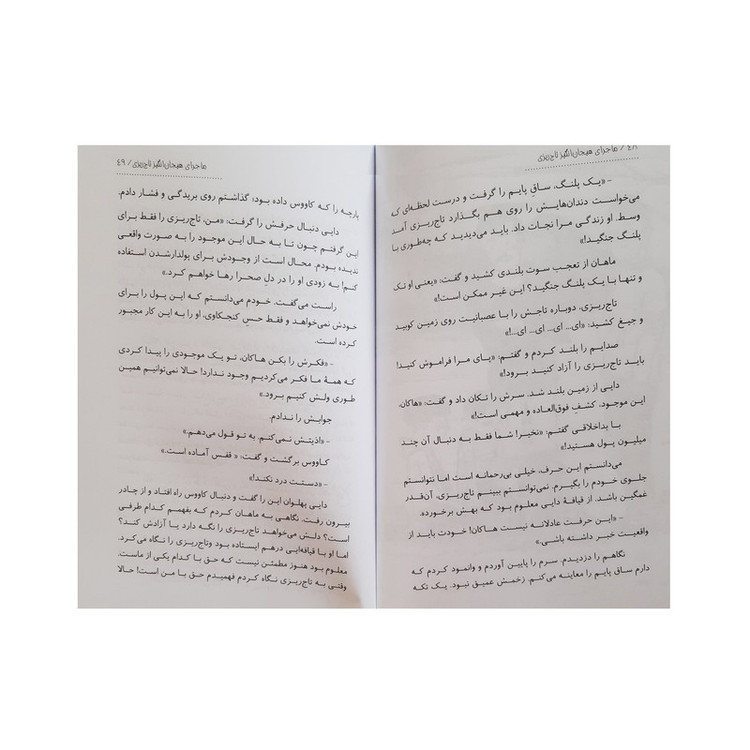 ۴۸ / ماجرای هیجان‌انگیز تاج‌ریزی
- «یک پلنگ، ساق پایم را گرفت و درست لحظه‌ای که
می‌خواست دندان‌هایش را روی هم بگذارد تاج‌ریزی آمد
وسط. او زندگی مرا نجات داد. باید می‌دیدید که چه‌طوری با
پلنگ جنگید!»
ماهان از تعجب سوت بلندی کشید و گفت: «یعنی او تک
و تنها با یک پلنگ جنگید؟ این غیر ممکن است!»
تاج‌ریزی، دوباره تاجش را با عصبانیت روی زمین کوبید
و جیغ کشید: «ای... ای... ای... ای...!»
صدایم را بلند کردم و گفتم: «پای مرا فراموش کنید!
باید تاج‌ریزی را آزاد کنید برود!»
دایی از زمین بلند شد. سرش را تکان داد و گفت: «هاکان،
این موجود، کشفِ فوق‌العاده و مهمی است!»
با بداخلاقی گفتم: «نخیر! شما فقط به دنبال آن چند
میلیون پول هستید!»
می‌دانستم این حرف، خیلی بی‌رحمانه است اما نتوانستم
جلوی خودم را بگیرم. نمی‌توانستم ببینم تاج‌ریزی، آن‌قدر
غمگین باشد. از قیافهٔ دایی معلوم بود که بهش برخورده.
- «این حرفت عادلانه نیست هاکان! خودت باید از
واقعیت خبر داشته باشی.»
نگاهم را دزدیدم. سرم را پایین آوردم و وانمود کردم که
دارم ساق پایم را معاینه می‌کنم. زخمش عمیق نبود. یک تکه
ماجرای هیجان‌انگیز تاج‌ریزی / ۴۹
پارچه را که کاووس داده بود؛ گذاشتم روی بریدگی و فشار دادم.
دایی دنبال حرفش را گرفت: «من، تاج‌ریزی را فقط برای
این گرفتم چون تا به حال این موجود را به صورت واقعی
ندیده بودم. محال است از وجودش برای پولدارشدن استفاده
کنم! به زودی او را در دلِ صحرا رها خواهم کرد.»
راست می‌گفت. خودم می‌دانستم که این پول را برای
خودش نمی‌خواهد و فقط حسِ کنجکاوی، او را به این کار مجبور
کرده است.
- «فکرش را بکن هاکان، تو یک موجودی را پیدا کردی
که همهٔ ما فکر می‌کردیم وجود ندارد! حالا نمی‌توانیم همین
طوری ولش کنیم برود.»
جوابش را ندادم.
- «اذیتش نمی‌کنم. به تو قول می‌دهم.»
کاووس برگشت و گفت: « قفس آماده است.»
- «دستت درد نکند!»
دایی پهلوان این را گفت و دنبال کاووس راه افتاد و از چادر
بیرون رفت. نگاهی به ماهان کردم که بفهمم کدام طرفی
است؟ دلش می‌خواهد تاج‌ریزی را نگه دارد یا آزادش کند؟
اما او با قیافه‌ایی درهم ایستاده بود وتاج‌ریزی را نگاه می‌کرد.
معلوم بود هنوز مطمئن نیست که حق با کدام یکی از ماست.
وقتی به تاج‌ریزی نگاه کردم فهمیدم حق با من است! حالا